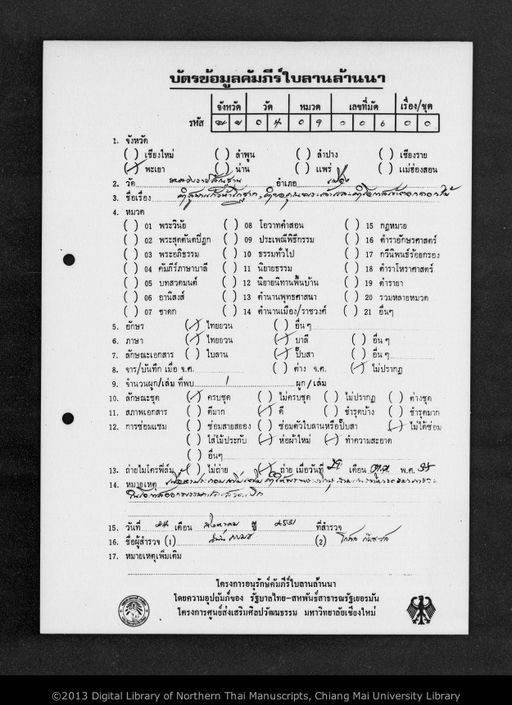 บัตรข้อมูลคัมภีร์ใบลานล้านนา
จังหวัด วัด หมวด เลขที่มัด เรื่อง/ชุด
รหัส ๐ ๔ ๐ ๙ ๐ ๐ ๖ ๐ ๐
1. จังหวัด
( ) เชียงใหม่ ( ) ลำพูน ( ) ลำปาง ( ) เชียงราย
(✓) พะเยา ( ) น่าน ( ) แพร่ ( ) แม่ฮ่องสอน
2. วัด อำเภอ เมือง
3. ชื่อเรื่อง
4. หมวด
( ) 01 พระวินัย ( ) 08 โอวาทคำสอน ( ) 15 กฎหมาย
( ) 02 พระสุตตันตปิฎก ( ) 09 ประเพณีพิธีกรรม ( ) 16 ตำราอักษรศาสตร์
( ) 03 พระอภิธรรม ( ) 10 ธรรมทั่วไป ( ) 17 กวีนิพนธ์ร้อยกรอง
( ) 04 คัมภีร์ภาษาบาลี ( ) 11 นิยายธรรม ( ) 18 ตำราโหราศาสตร์
( ) 05 บทสวดมนต์ ( ) 12 นิยายนิทานพื้นบ้าน ( ) 19 ตำรายา
( ) 06 อานิสงส์ ( ) 13 ตำนานพุทธศาสนา ( ) 20 รวมหลายหมวด
( ) 07 ชาดก ( ) 14 ตำนานเมือง/ราชวงศ์ ( ) 21 อื่นๆ
5. อักษร (✓) ไทยยวน ( ) อื่น ๆ
6. ภาษา (✓) ไทยยวน (✓) บาลี ( ) อื่น ๆ
7. ลักษณะเอกสาร ( ) ใบลาน (✓) ปั๊บสา ( ) อื่น ๆ
8. จาร/บันทึก เมื่อ จ.ศ. ( ) ค่าง จ.ศ. (✓) ไม่ปรากฏ
9. จำนวนผูก/เล่ม ที่พบ 1 ผูก / เล่ม
10. ลักษณะชุด (✓) ครบชุด ( ) ไม่ครบชุด ( ) ไม่ปรากฏ ( ) ค่างชุด
11. สภาพเอกสาร ( ) ดีมาก (✓) ดี ( ) ชำรุดบ้าง ( ) ชำรุดมาก
12. การซ่อมแซม ( ) ซ่อมสายสยอง ( ) ซ่อมตัวใบลานหรือปั๊บสา (✓) ไม่ได้ซ่อม
( ) ใส่ไม้ประกับ (✓) ห่อผ้าใหม่ (✓) ทำความสะอาด
( ) อื่นๆ
13. ถ่ายไมโครฟิล์ม ( ) ไม่ถ่าย (✓) ถ่าย เมื่อวันที่ เดือน พ.ศ.
14. หมายเหตุ
15. วันที่ เดือน สิงหาคม ปี ๒๕๓๑ ที่สำรวจ
16. ชื่อผู้สำรวจ (1) (2)
17. หมายเหตุเพิ่มเติม
โครงการอนุรักษ์คัมภีร์ใบลานล้านนา
โดยความอุปถัมภ์ของ รัฐบาลไทย-สหพันธ์สาธารณรัฐเยอรมัน
โครงการศูนย์ส่งเสริมศิลปวัฒนธรรม มหาวิทยาลัยเชียงใหม่
©2013 Digital Library of Northern Thai Manuscripts, Chiang Mai University Library